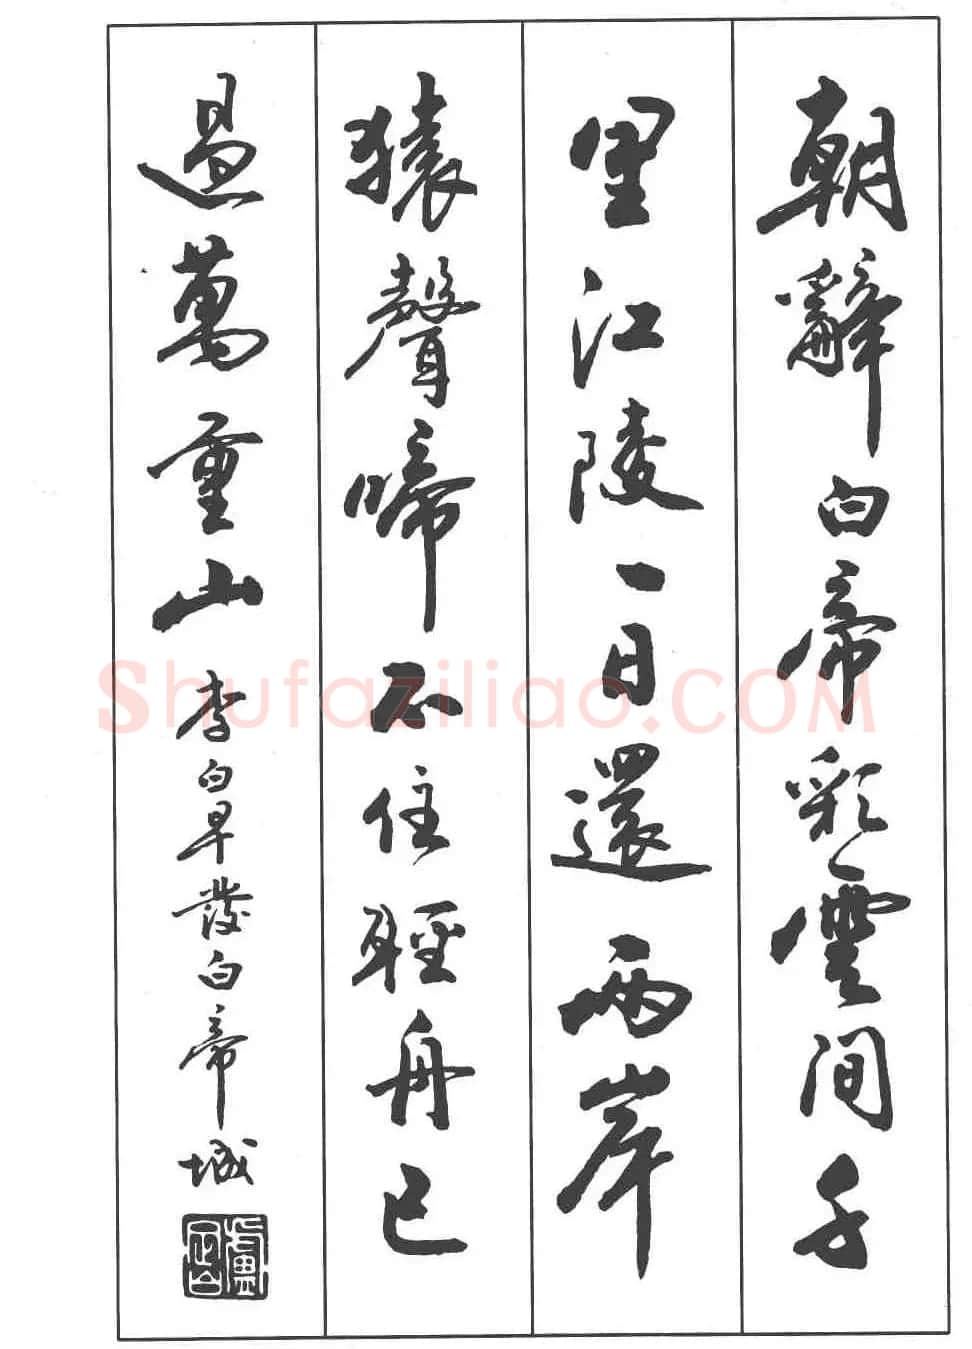 朝辭白帝彩雲間千
里江陵一日還兩岸
猿聲啼不住輕舟已
過萬重山
李白早發白帝城
Shufaziliao.COM